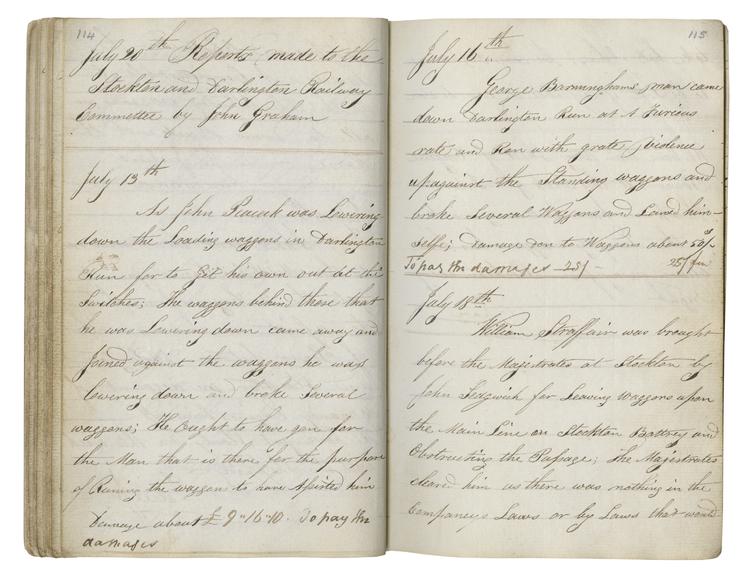 114
July 20th Reports made to the
Stockton and Darlington Railway
Committee by John Graham
July 13th
As John Peacok was Lowering
down the Loading waggons in Darlington
Run for to get his own out at the
Switches; The waggons behind those that
he was Lowering down came away and
Joined against the waggons he was
lowering down and broke Several
waggons; He ought to have gon for
the Man that is there for the purpose
of Runing the waggons to have Assisted him
Damage about £9"16"10. To pay the
damages
115
July 16th
George Barninghams man came
down Darlington Run at A Furious
rate and Ran with grate violence
up against the Standing waggons and
broke Several Waggons and Lamed him-
Selfe; Damage don to Waggons about 50/
To pay the damages 25/- 25/
July 18th
William Straffair was brought
before the Magistrates at Stockton by
John Sedgwick for Leaving Waggons upon
the Main Line on Stockton Battrey and
Obstructing the Passage; The Magistrates
cleared him as there was nothing in the
Companeys Laws or by Laws that would